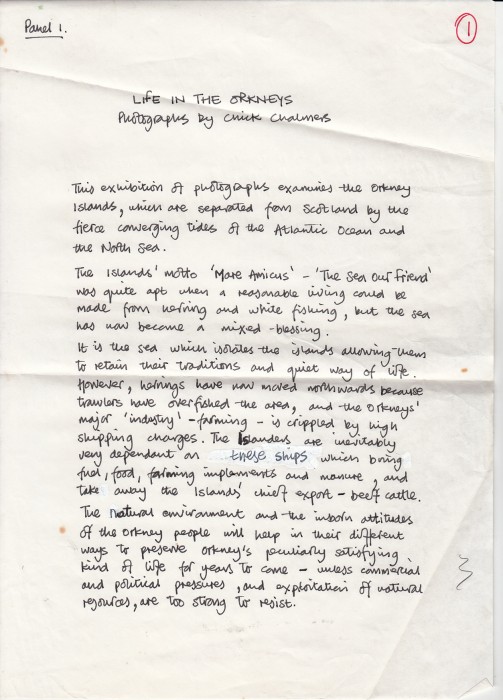 Panel 1.
1
LIFE IN THE ORKNEYS
Photographs by Chick Chalmers
This exhibition of photographs examines the Orkney
Islands, which are separated from Scotland by the
fierce converging tides of the Atlantic Ocean and
the North Sea.
The Islands' motto 'Mare Amicus' - 'The Sea Our Friend'
was quite apt when a reasonable living could be
made from herring and white fishing, but the sea
has now become a mixed-blessing.
It is the sea which isolates the islands allowing them
to retain their traditions and quiet way of life.
However, herrings have now moved northwards because
trawlers have overfished the area, and the Orkneys'
major 'industry' - farming - is crippled by high
shipping charges. The Islanders are inevitably
very dependant on these ships which bring
fuel, food, farming implements and manure, and
take away the Islands' chief export - beef cattle.
The natural environment and the inborn attitudes
of the Orkney people will help in their different
ways to preserve Orkney's peculiarly satisfying
kind of life for years to come - unless commercial
and political pressures, and exploitation of natural
resources, are too strong to resist.